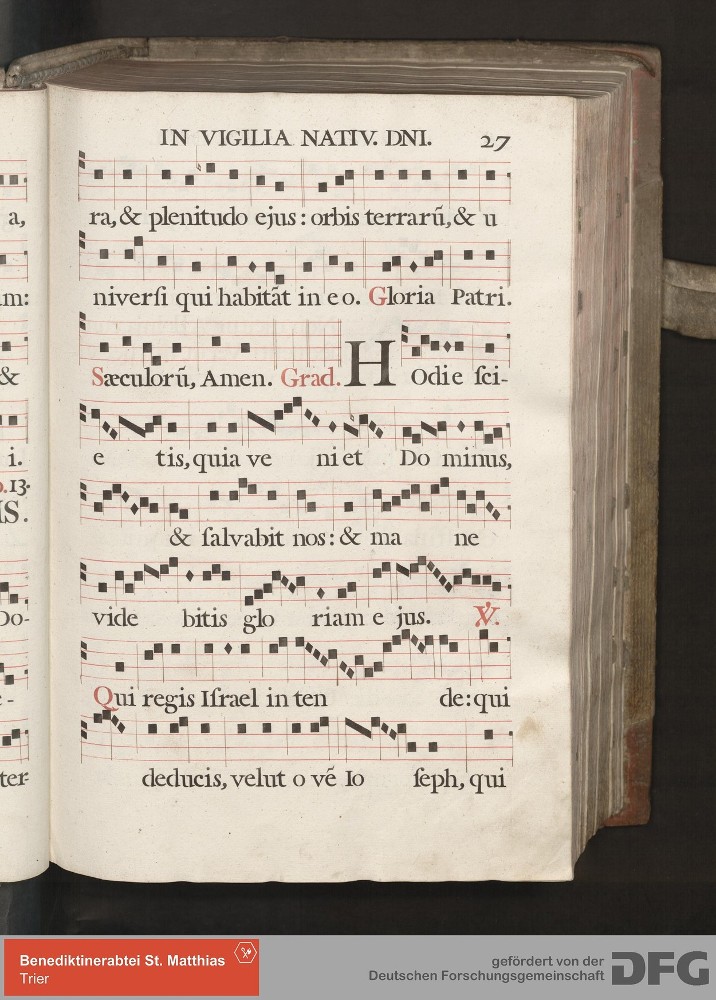 IN VIGILIA NATIV. DNI. 27
ra, & plenitudo ejus: orbis terrarũ, & u
niverſi qui habitãt in eo. Gloria Patri.
Sæculorũ, Amen. Grad. HOdie ſci-
e tis, quia ve ni et Do minus,
& ſalvabit nos: & ma ne
vide bitis glo riam e jus. ℣.
Qui regis Iſrael in ten de: qui
deducis, velut o vẽ Io ſeph, qui
a,
am:
&
i.
13.
IS.
Do-
e-
ter-
Benediktinerabtei St. Matthias
Trier
gefördert von der
Deutschen Forschungsgemeinschaft
DFG